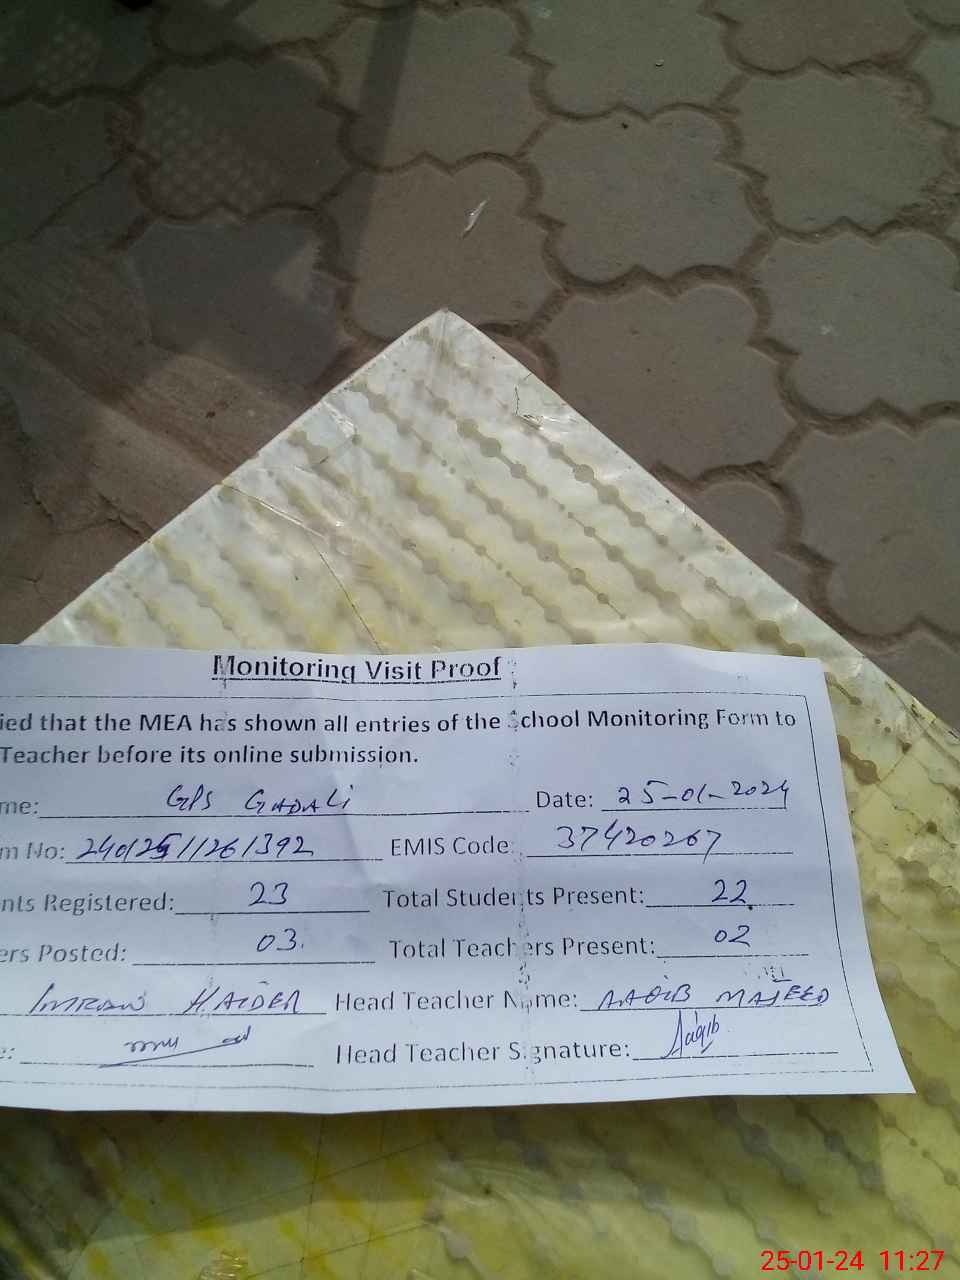 Monitoring Visit Proof
ied that the MEA has shown all entries of the School Monitoring Form to
Teacher before its online submission.
me: GPS GADALi Date: 25-01-2024
m No: 24012511261392 EMIS Code: 37420267
nts Registered: 23 Total Students Present: 22
ers Posted: 03. Total Teachers Present: 02
IMRAN HAIDER Head Teacher Name: AAQIB MAJEED
e: Head Teacher Signature: Aaqib
25-01-24 11:27